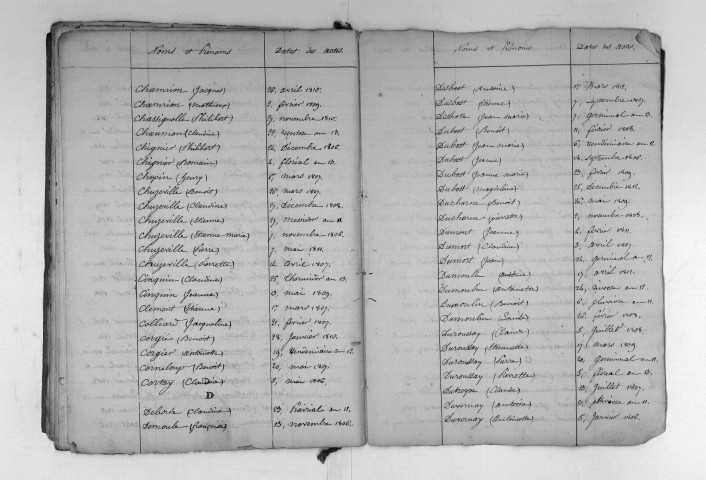 Noms et Prénoms Dates des actes.
Chamrion (Jacques) 20, avril 1812.
Chamrion (Mathieu) 2, février 1809.
Chassignolle (Philibert) 9, novembre 1810.
Chaumon (Claudine) 28, ventose an 13.
Chignier (Philibert) 24, Décembre 1806.
Chignier (Romain) 2, floréal an 13.
Chopin (Henry) 1er mars 1807.
Chuzeville (Benoit) 16, mars 1807.
Chuzeville (Claudine) 9, Décembre 1808.
Chuzeville (Etienne) 19, messidor an 11.
Chuzeville (Etienne marie) 1, novembre 1806.
Chuzeville (Pierre) 7, mai 1811.
Chuzeville (Pierrette) 2, avril 1807.
Cinquin (Claudine) 15, thermidor an 13.
Cinquin (Jeanne) 3, mai 1809.
Clement (Etienne) 1er mars 1807.
Colliard (Jacqueline) 21, février 1807.
Corgié (Benoit) 28, Janvier 1810.
Corgier (Antoinette) 19, Vendemiaire an 12.
Corneloup (Benoit) 20, mai 1807.
Cortay (Claudine) 5, mai 1806.
D
Deborde (Claudine) 23, Prairial an 11.
Demoule (Françoise) 13, novembre 1806.
Noms et Prénoms Dates des actes.
Dubost (Antoine) 1er Mars 1812.
Dubost (Etienne) 7, septembre 1807.
Dubost (Jean marie) 7, germinal an 13.
Dubost (Benoit) 11, février 1808.
Dubost (Jean marie) 6, vendémiaire an 11.
Dubost (Jeanne) 14, septembre 1808.
Dubost (Jeanne marie) 23, février 1809.
Dubost (magdeleine) 25, Decembre 1812.
Ducharne (Benoit) 20, mai 1809.
Ducharne (Pierrette) 2, novembre 1808.
Dumont (Jeanne) 2, février 1811.
Dumont (Claudine) 5, avril 1807.
Dumont (Jean) 12, germinal an 12.
Dumoulin (Antoine) 17, avril 1811.
Dumoulin (Antoinette) 26, nivose an 11.
Dumoulin (Benoit) 6, pluviose an 11.
Dumoulin (Louise) 28, février 1808.
Duroussay (Claine) 5, Juillet 1808.
Duroussay (Etiennette) 9, mars 1809.
Duroussay (Pierre) 20, germinal an 11.
Duroussay (Pierrette) 5, floréal an 13.
(Claude) 13, Juillet 1807.
Duvernay (Antoine) pluviose an 11.
Duvernay (Antoinette) 6, Janvier 1806.